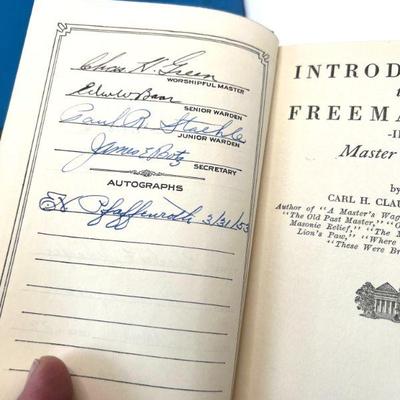 Chas H. Green
WORSHIPFUL MASTER
Edw W Baar
SENIOR WARDEN
Paul R. Staehle
JUNIOR WARDEN
James E Butz
SECRETARY
AUTOGRAPHS
Pfaffenroth 3/31/53
INTROD
FREEMA
Master
by
CARL H. CLAU
Author of "A Master's Wag
"The Old Past Master," "O
Masonic Relief," "The M
Lion's Paw," "Where
"These Were Br